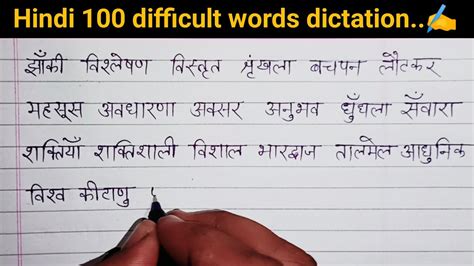 Hindi 100 difficult words dictation..✍️
झाँकी विश्लेषण विस्तृत शृंखला बचपन लौटकर
महसूस अवधारणा अक्सर अनुभव धुँधला सँवारा
शक्तियाँ शक्तिशाली विशाल भारद्वाज तालमेल आधुनिक
विश्व कीटाणु